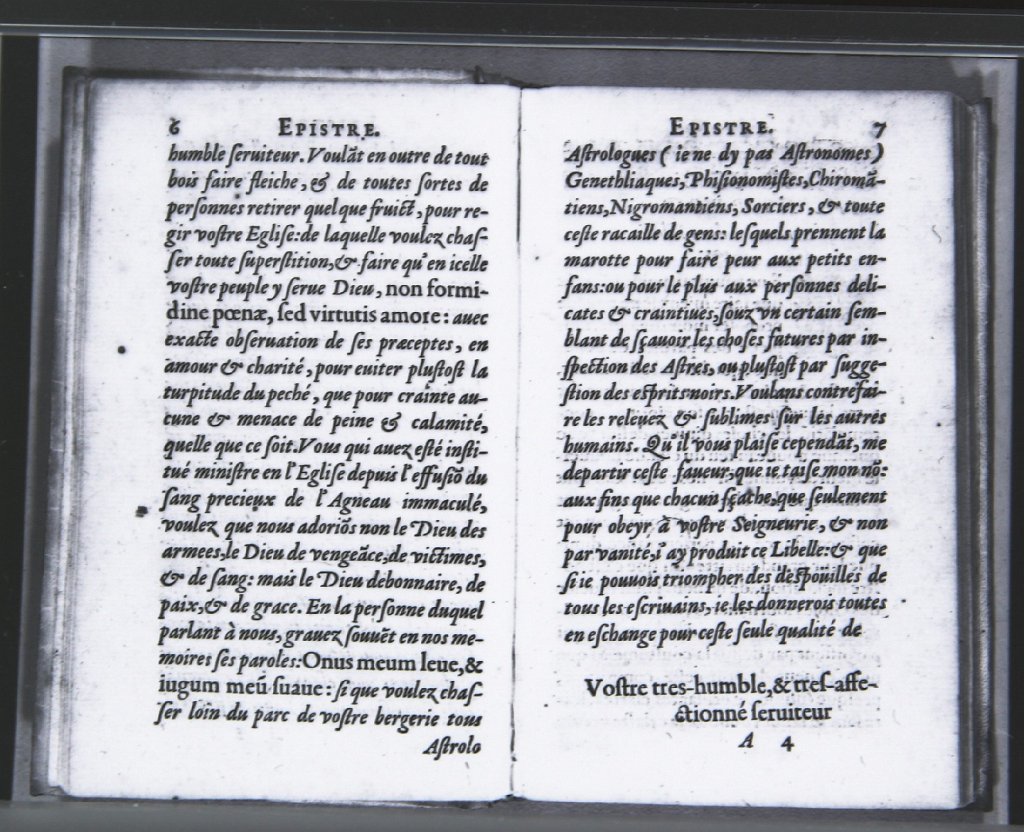 6 EPISTRE.
humble ſeruiteur. Voulãt en outre de tout
bois faire fleiche, & de toutes ſortes de
perſonnes retirer quelque fruict, pour re-
gir voſtre Egliſe: de laquelle voulez chaſ-
ſer toute ſuperſtition, & faire qu'en icelle
voſtre peuple y ſerue Dieu, non formi-
dine pœnæ, ſed virtutis amore: auec
exacte obſeruation de ſes præceptes, en
amour & charité, pour euiter pluſtoſt la
turpitude du peché, que pour crainte au-
cune & menace de peine & calamité,
quelle que ce ſoit. Vous qui auez eſté inſti-
tué miniſtre en l'Egliſe depuis l'effuſiõ du
ſang precieux de l'Agneau immaculé,
voulez que nous adoriõs non le Dieu des
armees, le Dieu de vengeãce, de victimes,
& de ſang: mais le Dieu debonnaire, de
paix, & de grace. En la perſonne duquel
parlant à nous, grauez ſouuẽt en nos me-
moires ſes paroles: Onus meum leue, &
iugum meũ ſuaue: ſi que voulez chaſ-
ſer loin du parc de voſtre bergerie tous
Aſtrolo
EPISTRE. 7
Aſtrologues ( ie ne dy pas Aſtronomes )
Genethliaques, Phiſionomiſtes, Chiromã-
tiens, Nigromantiens, Sorciers, & toute
ceſte racaille de gens: leſquels prennent la
marotte pour faire peur aux petits en-
fans: ou pour le plus aux perſonnes deli-
cates & craintiues, ſouz vn certain ſem-
blant de ſçauoir les choſes futures par in-
ſpection des Aſtres, ou pluſtoſt par ſugge-
ſtion des eſprits noirs. Voulans contrefai-
re les releuez & ſublimes ſur les autres
humains. Qu'il vous plaiſe cependãt, me
departir ceſte faueur, que ie taiſe mon nõ:
aux fins que chacun ſçathe, que ſeulement
pour obeyr à voſtre Seigneurie, & non
par vanité, i'ay produit ce Libelle: & que
ſi ie pouuois triompher des deſpouilles de
tous les eſcriuains, ie les donnerois toutes
en eſchange pour ceſte ſeule qualité de
Voſtre tres-humble, & treſ-affe-
ctionné ſeruiteur
A 4